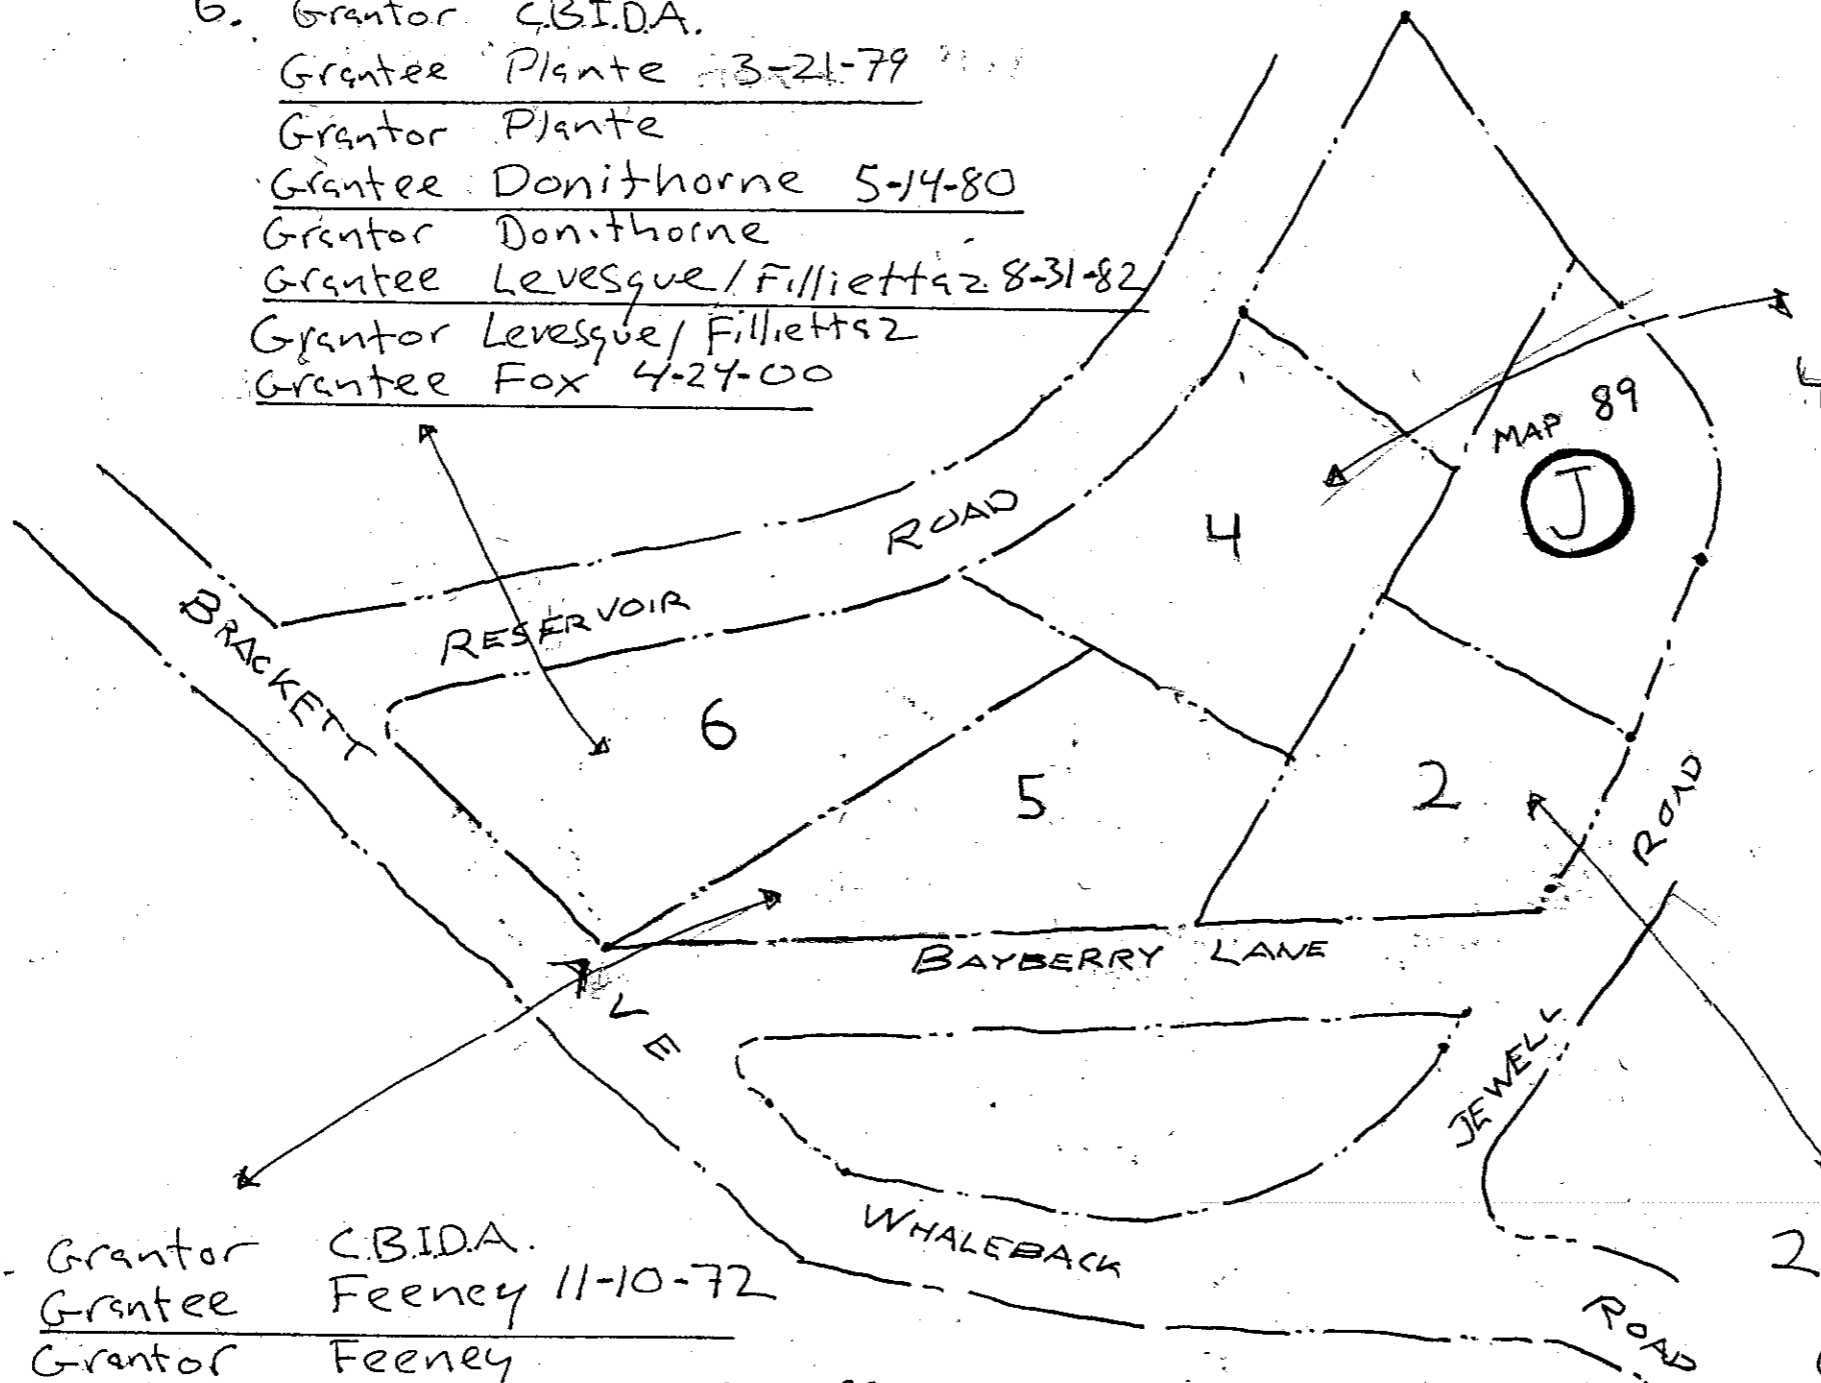 6. Grantor C.B.I.D.A.
Grantee Plante 3-21-79
Grantor Plante
Grantee Donithorne 5-14-80
Grantor Donithorne
Grantee Levesque/Filliettaz 8-31-82
Grantor Levesque/Filliettaz
Grantee Fox 4-24-00
MAP 89
J
4
4
RESERVOIR ROAD
BRACKETT AVE
6
5
2
JEWELL ROAD
BAYBERRY LANE
WHALEBACK ROAD
2
Grantor C.B.I.D.A.
Grantee Feeney 11-10-72
Grantor Feeney